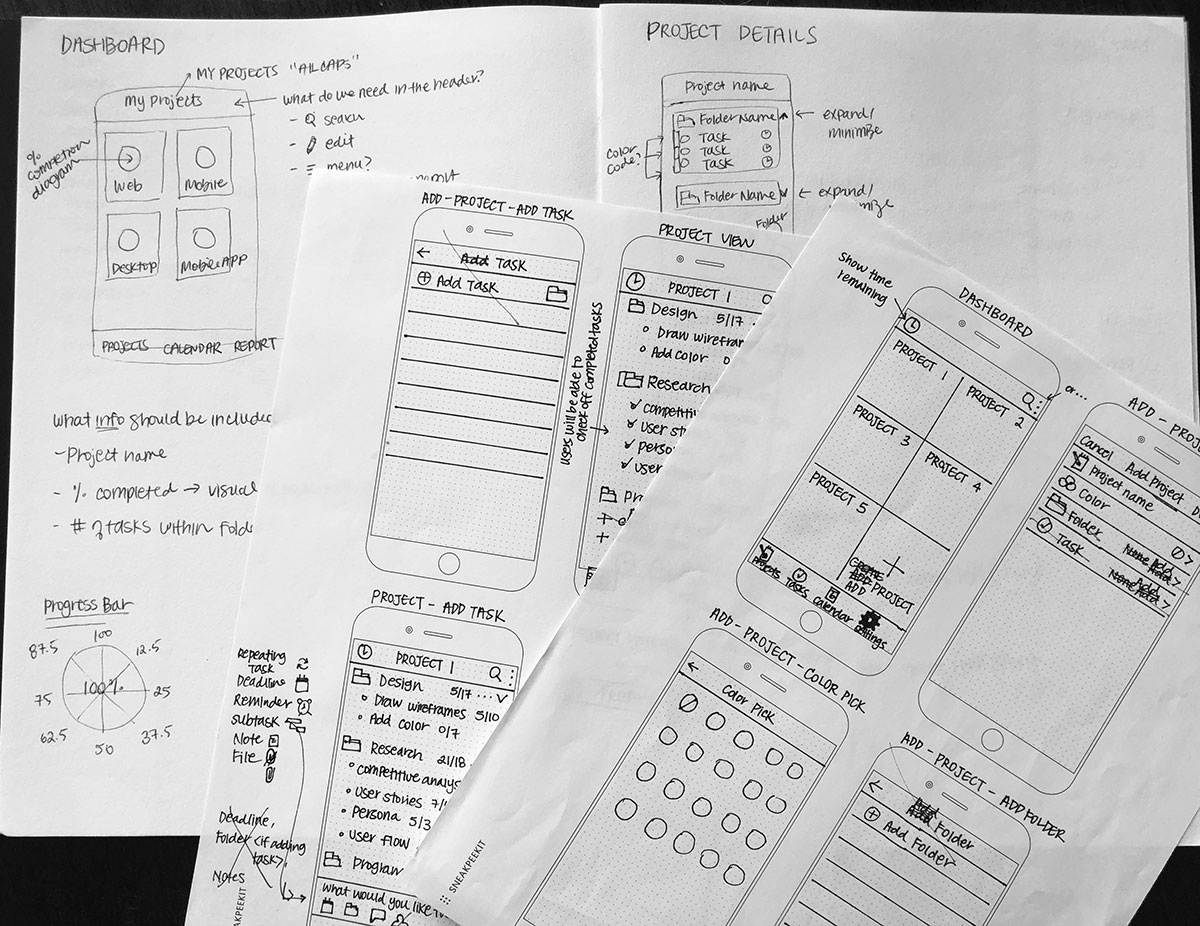 DASHBOARD
MY PROJECTS "ALL CAPS"
My Projects
what do we need in the header?
- search
- edit
- menu?
% completion diagram
Web
Mobile
Desktop
Mobile APP
PROJECTS CALENDAR REPORT
what info should be included
- Project name
- % completed → visual
- # of tasks within folde
Progress Bar
100
87.5
12.5
75
100%
25
62.5
37.5
50
PROJECT DETAILS
Project name
Folder Name
expand/
minimize
Task
Task
Task
color
code?
Folder Name
expand/
Folder
ADD - PROJECT - ADD TASK
Task
Add Task
users will be able to
check off completed tasks
PROJECT VIEW
PROJECT 1
Design 5/17
Draw wirefram
Add color
Research
competiti
user stor
perso
user
Pr
PROJECT - ADD TASK
PROJECT 1
Design 5/17 ...
Draw wireframes 5/10
Add color 0/7
Research 21/18
competitive analys
user stories 7/
Persona 5/3
user flow
Program
what would you like t
Repeating
Task
Deadline
Reminder
subtask
Note
File
Deadline,
Folder <if adding
task>,
Notes
SNEAKPEEKIT
Show time
remaining
DASHBOARD
PROJECT 1
PROJECT 2
PROJECT 3
PROJECT 4
PROJECT 5
CREATE
ADD PROJECT
ADD
Projects Tasks Calendar Settings
or...
ADD - PROJ
Cancel Add Project D
Project name
Color
Folder None Add >
Task None Add >
ADD - PROJECT - COLOR PICK
Color Pick
ADD - PROJECT - ADD FOLDER
Add Folder
Add Folder
SNEAKPEEKIT